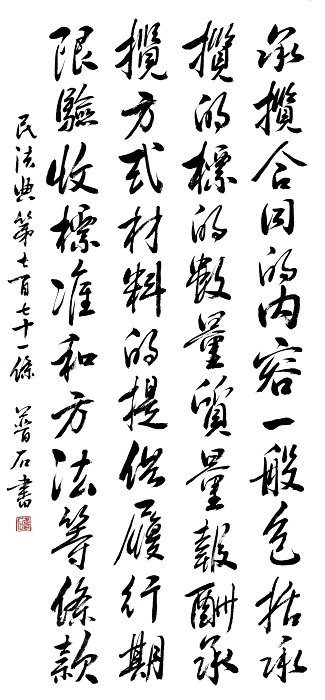 承攬合同的內容一般包括承
攬的標的數量質量報酬承
攬方式材料的提供履行期
限驗收標准和方法等條款
民法典第七百七十一條 晉石書